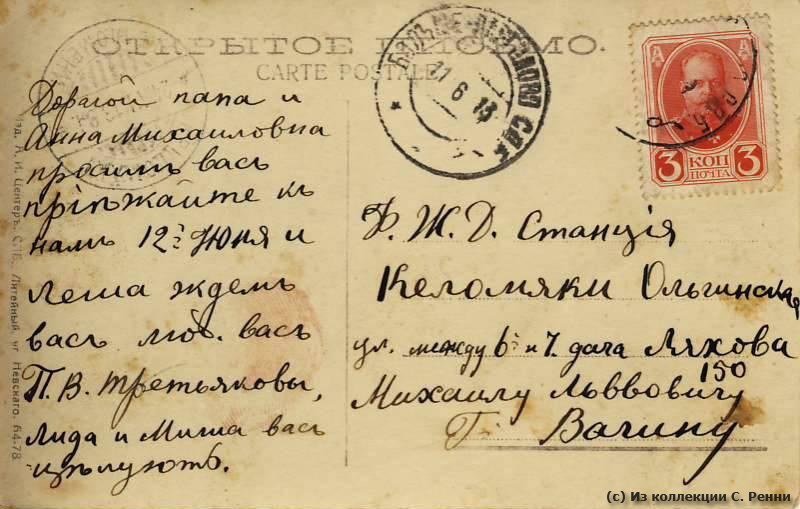 ОТКРЫТОЕ ПИСЬМО.
CARTE POSTALE
11 6 13
3 КОП ПОЧТА 3
Дорогой папа и
Анна Михаиловна
просимъ васъ
пріѣжайте къ
намъ 12го Июня и
Леша ждемъ
васъ люб. васъ
П. В. Третьяковы,
Лида и Миша васъ
цѣлуютъ.
Ф. Ж. Д. Станція
Келомяки Ольгинская
ул. между 6й и 7. дача Ляхова
150
Михаилу Львовичу
Г. Вагину
Литейный, уг. Невскаго, 64-78.
(c) Из коллекции С. Ренни